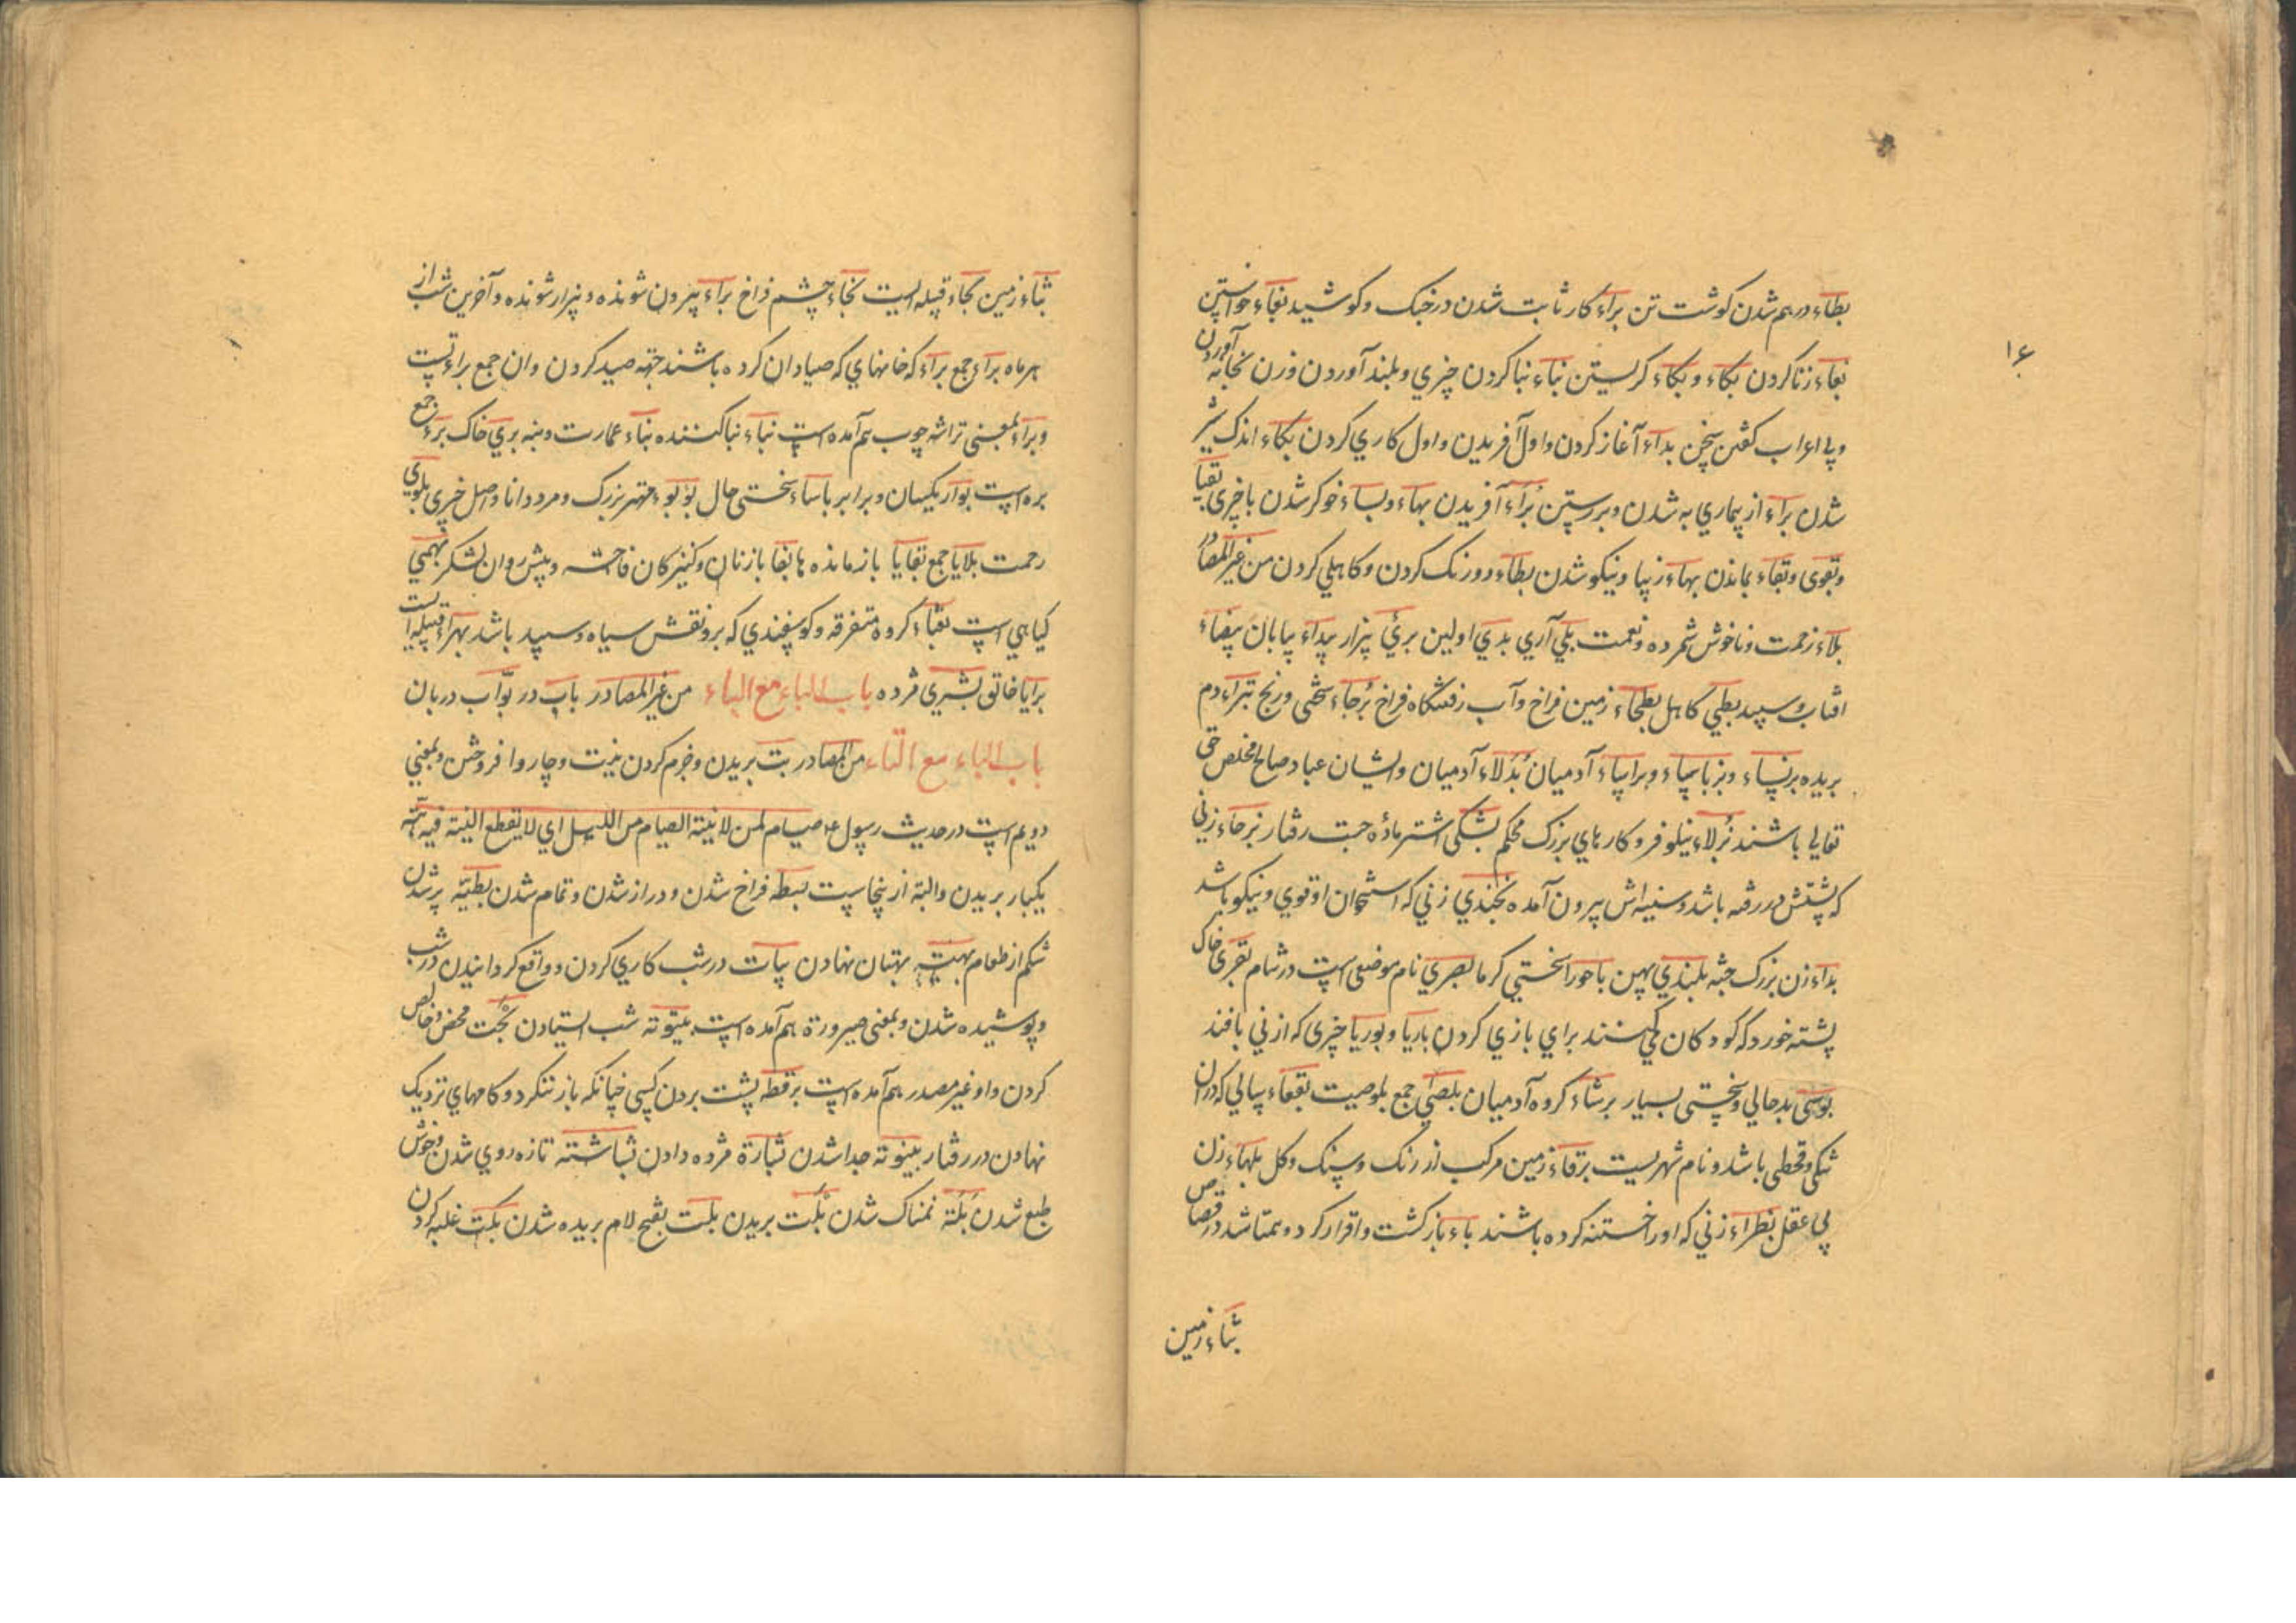 بطاء درهم شدن کوشت تن براء کار ثابت شدن در جنک و کوشید بغاء خواستن
۱۶
بغاء زنا کردن بکاء و بکاء کریستن بناء بنا کردن چیزی و بلند آوردن و زن بخانه آوردن
و بی اعراب کفتن سخن بداء آغاز کردن و اول آفریدن و اول کاری کردن بکاء اندک شیر
شدن براء از بیماری به شدن و برستن براء آفریدن بهاء و بساء خوکر شدن با چیزی بقیا
و بقوی و بقاء بماندن بهاء زیبا و نیکو شدن بطاء درنک کردن و کاهلی کردن من غیر المصادر
بلاء زحمت و ناخوش شمرده و نعمت بلی آری بدی اولین بری بیزار بیداء بیابان بیضاء
افتاب و سپید بطی کاهل بطحاء زمین فراخ و آب رفتنکاه فراخ برحاء سختی و رنج بتراء دم
بریده برنساء و برباسماء و براساء آدمیان بدلاء آدمیان و ایشان عباد صالح مخلص حق
تعالی باشند بزلاء نیلوفر و کارهای بزرک محکم بشکی اشتر ماده جست رفتار بزخاء زنی
که پشتش در رفته باشد و سینه اش بیرون آمده بخندی زنی که استخوان او قوی و نیکو باشد
بداء زن بزرک جثه بلندی پهن باحورا سختی کرما بصری نام موضعی است در شام بقری خاک
پشته خورد که کودکان می کنند برای بازی کردن باریا و بوریا چیزی که از نی بافند
بوسی بدحالی و سختی بسیار برشاء کروه آدمیان بلصی جمع بلوصیت بقعاء سالی که دران
تنکی و قحطی باشد و نام شهریست برقاء زمین مرکب از رنک و سنک و کل بلهاء زن
بی عقل بظراء زنی که او را ختنه کرده باشند باء بازکشت و اقرار کرد و همتا شد در قصاص
بثاء زمین
بثاء زمین بجاء قبیله ایست بخاء چشم فراخ براء بیرون شونده و بیزار شونده و آخرین شب از
هر ماه براء جمع براء که خانهای که صیادان کرده باشند جهة صید کردن وان جمع براءتست
و براء بمعنی تراشه چوب هم آمده است بناء بنا کننده بناء عمارت و بنه بری خاک برء جمع
بره است بواء یکسان و برابر باساء سختی حال بؤبوء مهتر بزرک و مرد دانا و اصل چیزی بلوی
رحمت بلایا جمع بقایا بازمانده ها بغایا زنان و کنیزکان فاحشه و پیش روان لشکر بهمی
کیاهی است بقباء کروه متفرقه و کوسفندی که برو نقش سیاه و سپید باشد بهراء قبیله ایست
برایا خالق بشری مژده باب الباء مع الباء من غیر المصادر باب در بواب دربان
باب الباء مع التاء من المصادر بت بریدن و جزم کردن نیت و چاروا فروختن و بمعنی
دویم است در حدیث رسول ع م صیام لمن لا یبتة الصیام من اللیل ای لا یقطع النیة فیه بتة
یکبار بریدن و البتة از ینجاست بسطه فراخ شدن و دراز شدن و تمام شدن بطنة پر شدن
شکم از طعام بهتة بهتان نهادن بیات در شب کاری کردن و واقع کردانیدن در شب
و پوشیده شدن و بمعنی صیرورة هم آمده است بیتوتة شب ایستادن بحت محض و خالص
کردن و او غیر مصدر هم آمده است برقطة پشت بردن کسی چنانکه باز ننکرد و کامهای نزدیک
نهادن در رفتار بینونة جدا شدن بشارة مژده دادن بشاشتة تازه روی شدن و خوش
طبع شدن بلة نمناک شدن بلت بریدن بلت بفتح لام بریده شدن بکت غلبه کردن